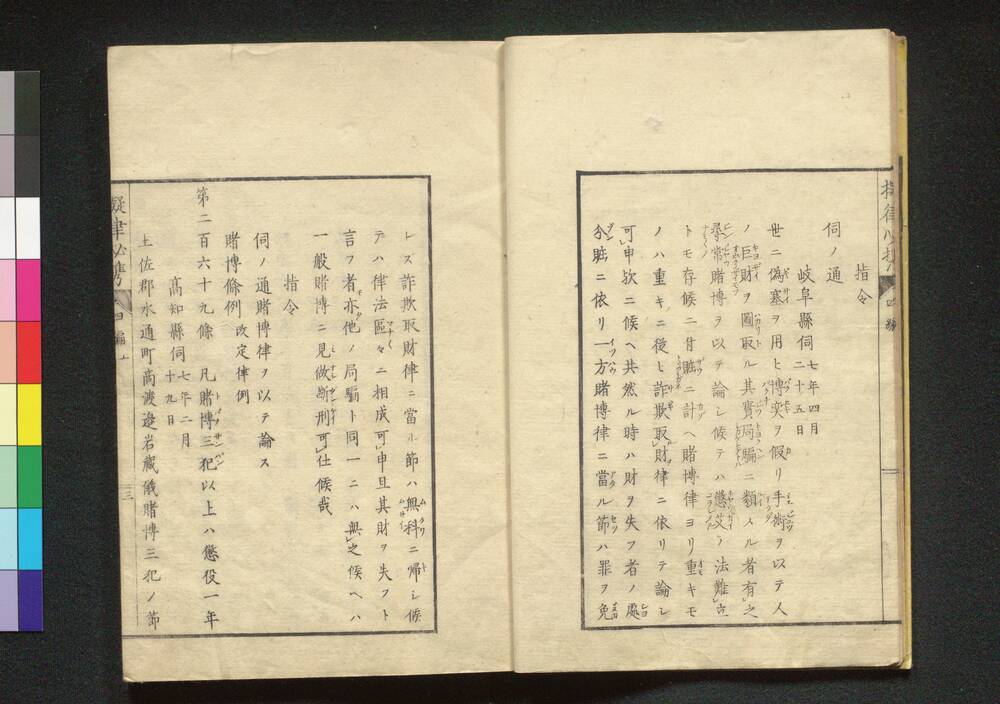 指令
伺ノ通
岐阜縣伺 七年四月二十五日
世ニ偽塞ヲ用ヒ博奕ヲ假リ手術ヲ以テ人
ノ巨財ヲ圖取ル其實局騙ニ類スル者有之
尋常賭博ヲ以テ論シ候テハ懲艾ノ法難立
トモ存候ニ付贓ニ計ヘ賭博律ヨリ重キモ
ノハ重キニ從ヒ詐欺取財律ニ依リテ論シ
可申欤ニ候ヘ共然ル時ハ財ヲ失フ者ノ處
分贓ニ依リ一方賭博律ニ當ル節ハ罪ヲ免
レズ詐欺取財律ニ當ル節ハ無科ニ帰シ候
テハ律法區々ニ相成可申且其財ヲ失フト
言フ者亦他ノ局騙ト同一ニハ無之候ヘハ
一般賭博ニ見做断刑可仕候哉
指令
伺ノ通賭博律ヲ以テ論ス
賭博條例 改定律例
第二百六十九條 凡賭博三犯以上ハ懲役一年
高知縣伺 七年二月十九日
土佐郡水通町高渡邉岩蔵儀賭博三犯ノ節
擬律必携 四編 上